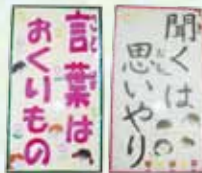 言葉は
おくりもの
聞くは
思いやり